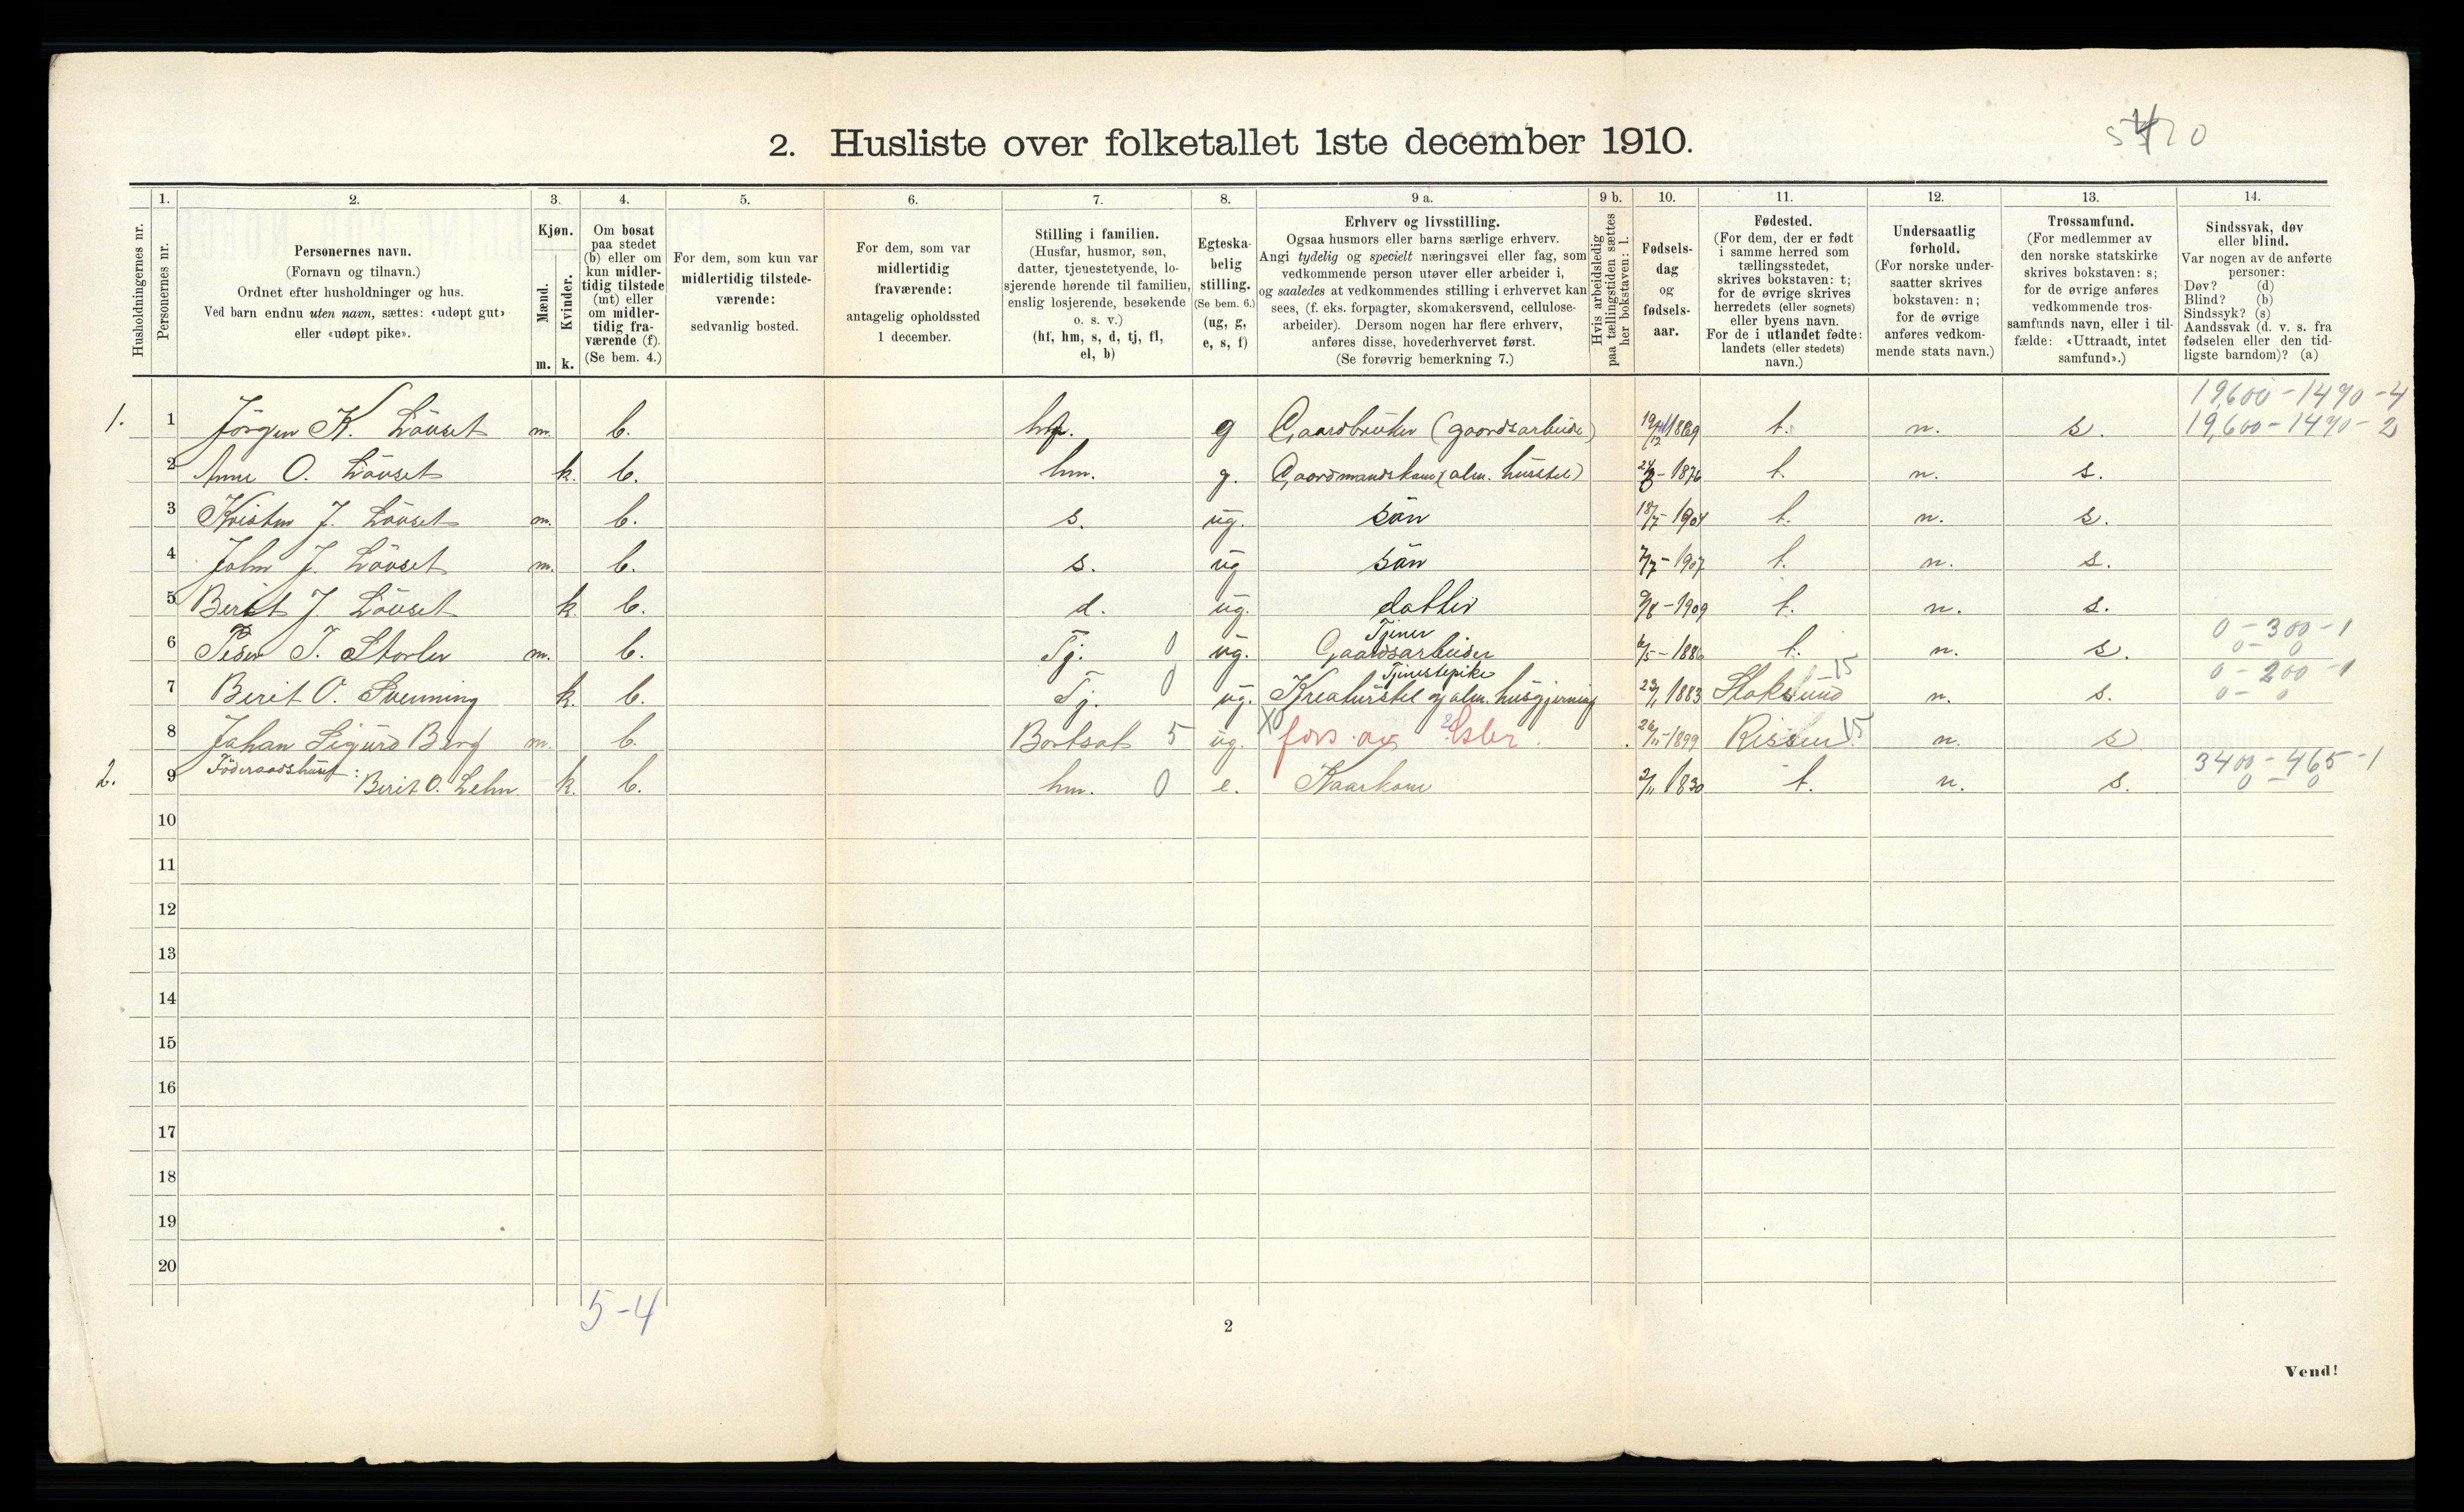 2. Husliste over folketallet 1ste december 1910.
Husholdningernes nr.
1.
Personernes nr.
2.
Personernes navn.
(Fornavn og tilnavn.)
Ordnet efter husholdninger og hus.
Ved barn endnu uten navn, sættes: «udøpt gut»
eller «udøpt pike».
3.
Kjøn.
Mænd.
Kvinder.
m.
k.
4.
Om bosat
paa stedet
(b) eller om
kun midler-
tidig tilstede
(mt) eller
om midler-
tidig fra-
værende (f).
(Se bem. 4.)
5.
For dem, som kun var
midlertidig tilstede-
værende:
sedvanlig bosted.
6.
For dem, som var
midlertidig
fraværende:
antagelig opholdssted
1 december.
7.
Stilling i familien.
(Husfar, husmor, søn,
datter, tjenestetyende, lo-
sjerende hørende til familien,
enslig losjerende, besøkende
o. s. v.)
(hf, hm, s, d, tj, fl,
el, b)
8.
Egteska-
belig
stilling.
(Se bem. 6.)
(ug, g,
e, s, f)
9 a.
Erhverv og livsstilling.
Ogsaa husmors eller barns særlige erhverv.
Angi tydelig og specielt næringsvei eller fag, som
vedkommende person utøver eller arbeider i,
og saaledes at vedkommendes stilling i erhvervet kan
sees, (f. eks. forpagter, skomakersvend, cellulose-
arbeider). Dersom nogen har flere erhverv,
anføres disse, hovederhvervet først.
(Se forøvrig bemerkning 7.)
9 b.
Hvis arbeidsledig
paa tællingstiden sættes
her bokstaven: l.
10.
Fødsels-
dag
og
fødsels-
aar.
11.
Fødested.
(For dem, der er født
i samme herred som
tællingsstedet,
skrives bokstaven: t;
for de øvrige skrives
herredets (eller sognets)
eller byens navn.
For de i utlandet fødte:
landets (eller stedets)
navn.)
12.
Undersaatlig
forhold.
(For norske under-
saatter skrives
bokstaven: n;
for de øvrige
anføres vedkom-
mende stats navn.)
13.
Trossamfund.
(For medlemmer av
den norske statskirke
skrives bokstaven: s;
for de øvrige anføres
vedkommende tros-
samfunds navn, eller i til-
fælde: «Uttraadt, intet
samfund».)
14.
Sindssvak, døv
eller blind.
Var nogen av de anførte
personer:
Døv? (d)
Blind? (b)
Sindssyk? (s)
Aandssvak (d. v. s. fra
fødselen eller den tid-
ligste barndom)? (a)
19,600-1490-4
1. 1 Jörgen K. Lövset m. b. hf. g Gaardbruker (gaardsarbeide) 1869 t. n. s. 19,600-1490-2
2 Anne O. Lövset k. b. hm. g. Gaardmandskone (alm. husstel) 1876 t. n. s.
3 Kristen J. Lövset m. b. s. ug. sön 18/7-1904 t. n. s.
4 John J. Lövset m. b. s. ug sön 7/7-1907 t. n. s.
5 Berit J. Lövset k. b. d. ug. datter 9/8-1909 t. n. s.
Tjener 0-300-1
6 Peder J. Storler m. b. Tj. 0 ug. Gaardsarbeider 6/5-1886 t. n. s. 0-0
Tjenestepike 15 0-200-1
7 Berit O. Svenning k. b. Tj. 0 ug. Kreaturstel og alm. husgjerning 23/1 1883 Stoksund n. s. 0-0
8 Johan Sigurd Berg m. b. Bortsat 5 ug. X0 fors. av 26/11-1899 Rissen 15 n. s
Föderaadshuset: 3400-465-1
2. 9 Berit O. Lehn k. b. hm. 0 e. Kaarkone 2/11 1830 t. n. s. 0-0
10
11
12
13
14
15
16
17
18
19
20
5-4
2
Vend!